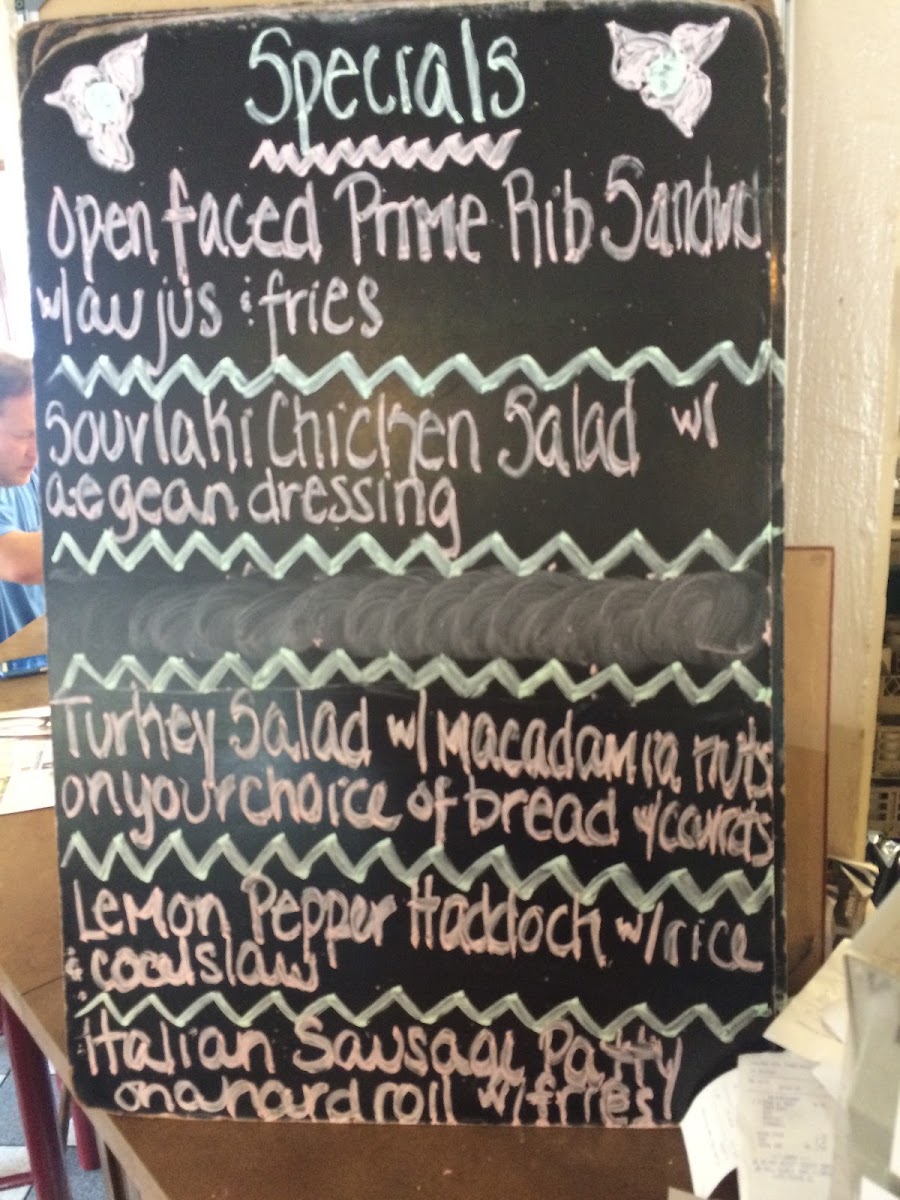 Specials
Open faced Prime Rib Sandwich
w/ au jus & fries
Souvlaki Chicken Salad w/
aegean dressing
Turkey Salad w/ Macadamia nuts
on your choice of bread w/ carrots
Lemon Pepper Haddock w/ rice
& coeulslaw
Italian Sausage Patty
on a hard roll w/ fries